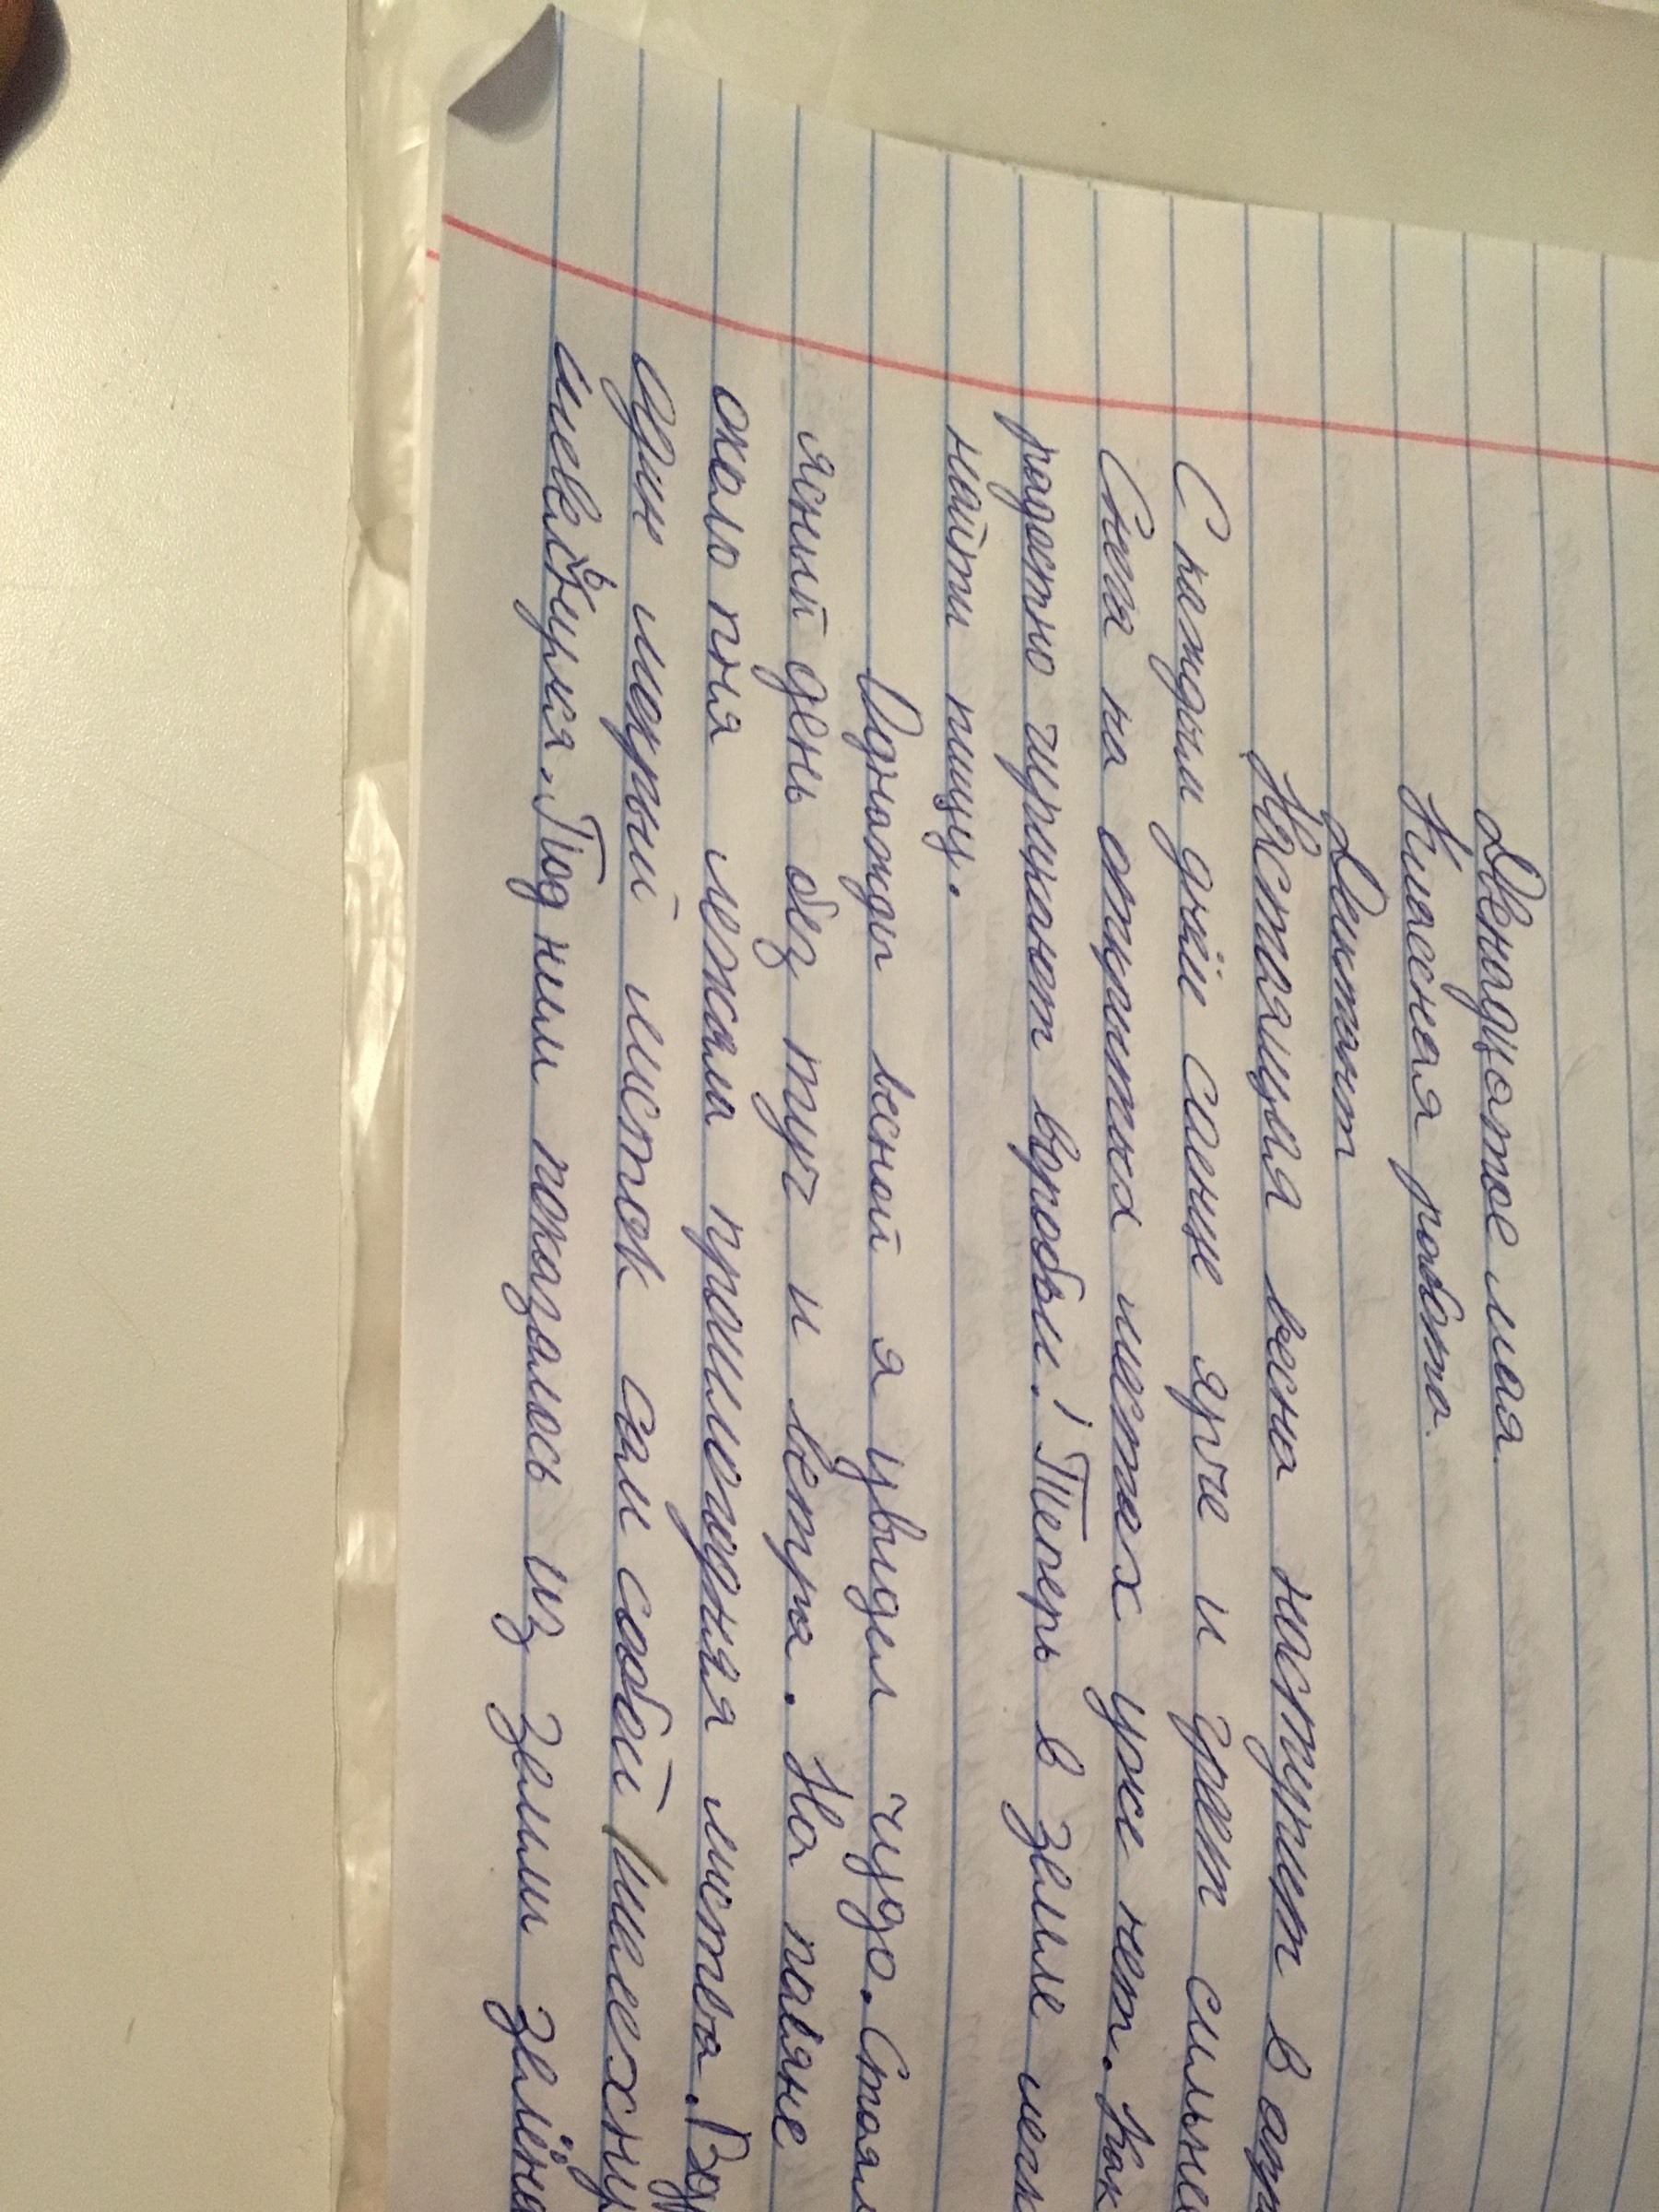 Двенадцатое мая.
Класная работа.
Диктант
Настаящия весна наступит в апр
С каждым днём солнце ярче и греет сильне
Снега на открытых местах уже нет. Как
радостно чирикают воробьи! Теперь в земле легк
найти пищу.
Однажды весной я увидел чудо. Стоял
ясный день без туч и ветра. На паляне
около пня лежала прошлогодняя листва.
один мокрый листок сам собой
шевельнулся. Под ним показалось из земли зелёна